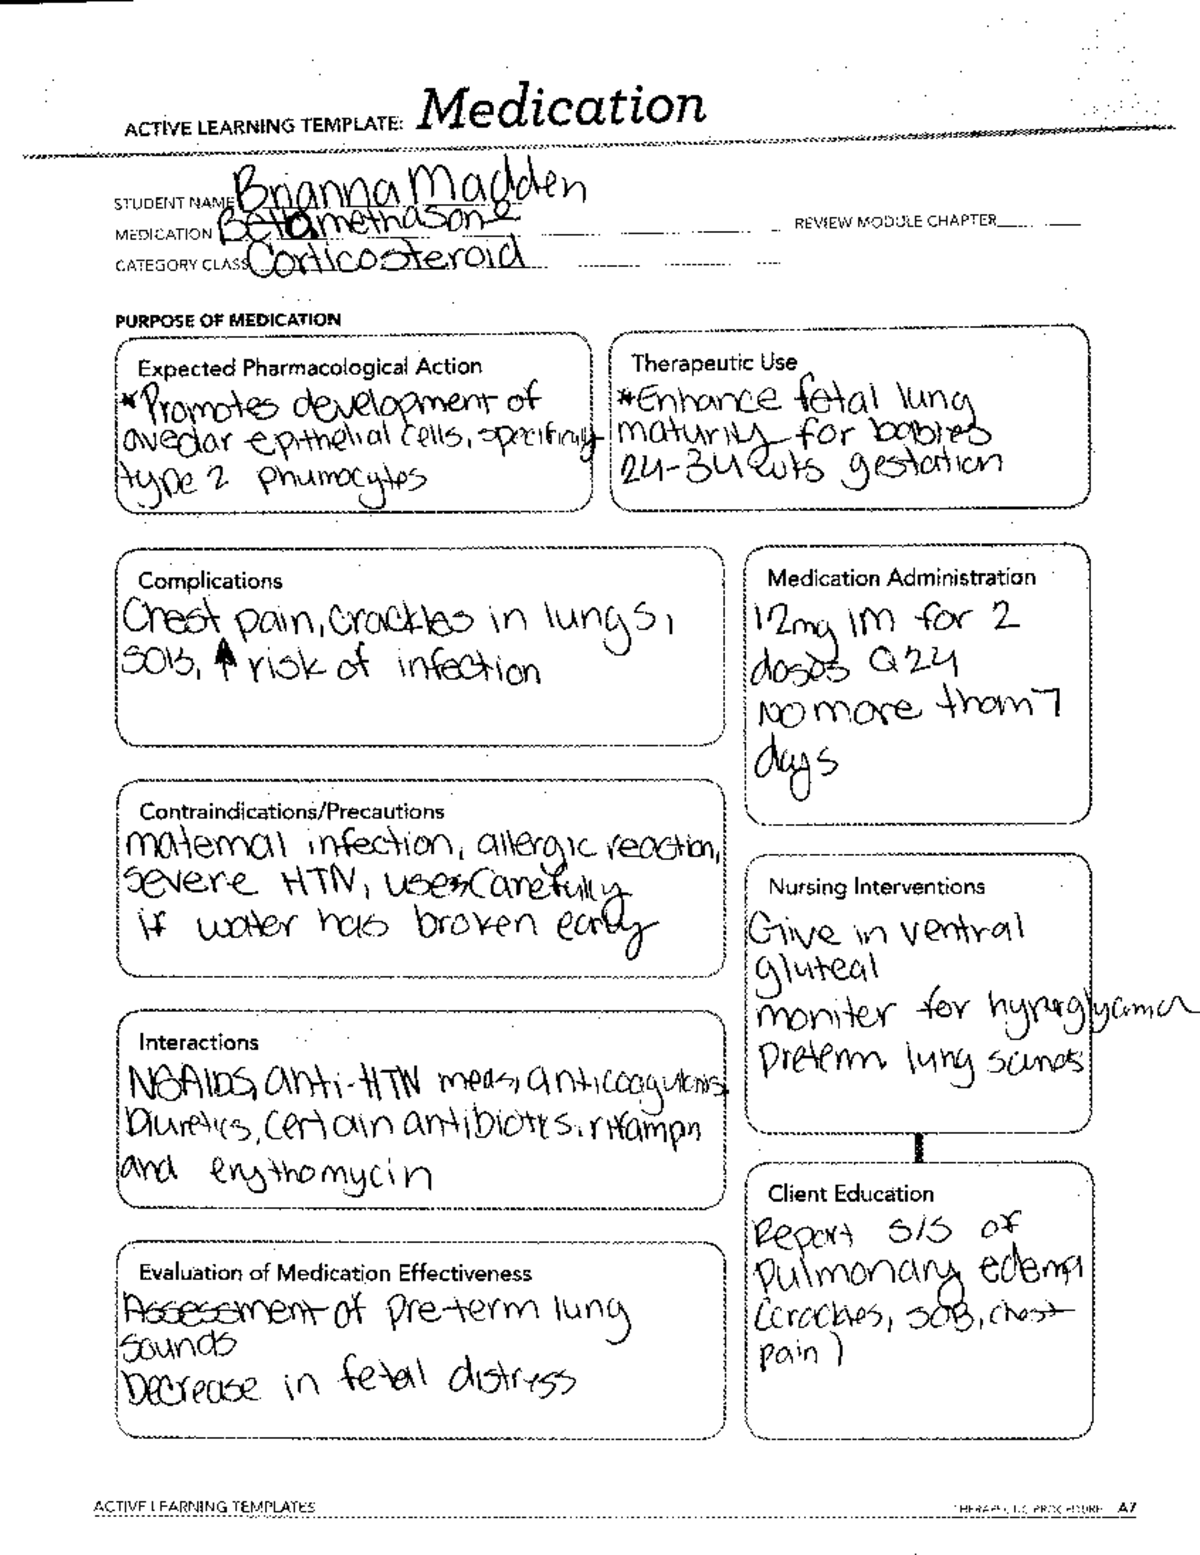 ACTIVE LEARNING TEMPLATE: Medication
STUDENT NAME Brianna Madden
MEDICATION Betamethasone
REVIEW MODULE CHAPTER
CATEGORY CLASS Corticosteroid
PURPOSE OF MEDICATION
Expected Pharmacological Action
*Promotes development of
aveolar epithelial cells, specifinly
type 2 phumocytes
Therapeutic Use
*Enhance fetal lung
maturity for babies
24-34 wts gestation
Complications
Chest pain, crackles in lungs,
SOB, ↑ risk of infection
Medication Administration
12mg IM for 2
doses Q24
No more than 7
days
Contraindications/Precautions
maternal infection, allergic reaction,
severe HTN, use carefully
if water has broken early
Nursing Interventions
Give in ventral
gluteal
moniter for
Preterm lung sounds
Interactions
NSAIDS, anti-HTN meds, anticoagulants
Diuretics, certain antibiotics, rifampn
and erythomycin
Client Education
Report S/S of
Pulmonary edema
(crackles, SOB, chest
pain)
Evaluation of Medication Effectiveness
Assessment of pre-term lung
sounds
Decrease in fetal distress
ACTIVE LEARNING TEMPLATES
THERAPEUTIC PROCEDURE A7